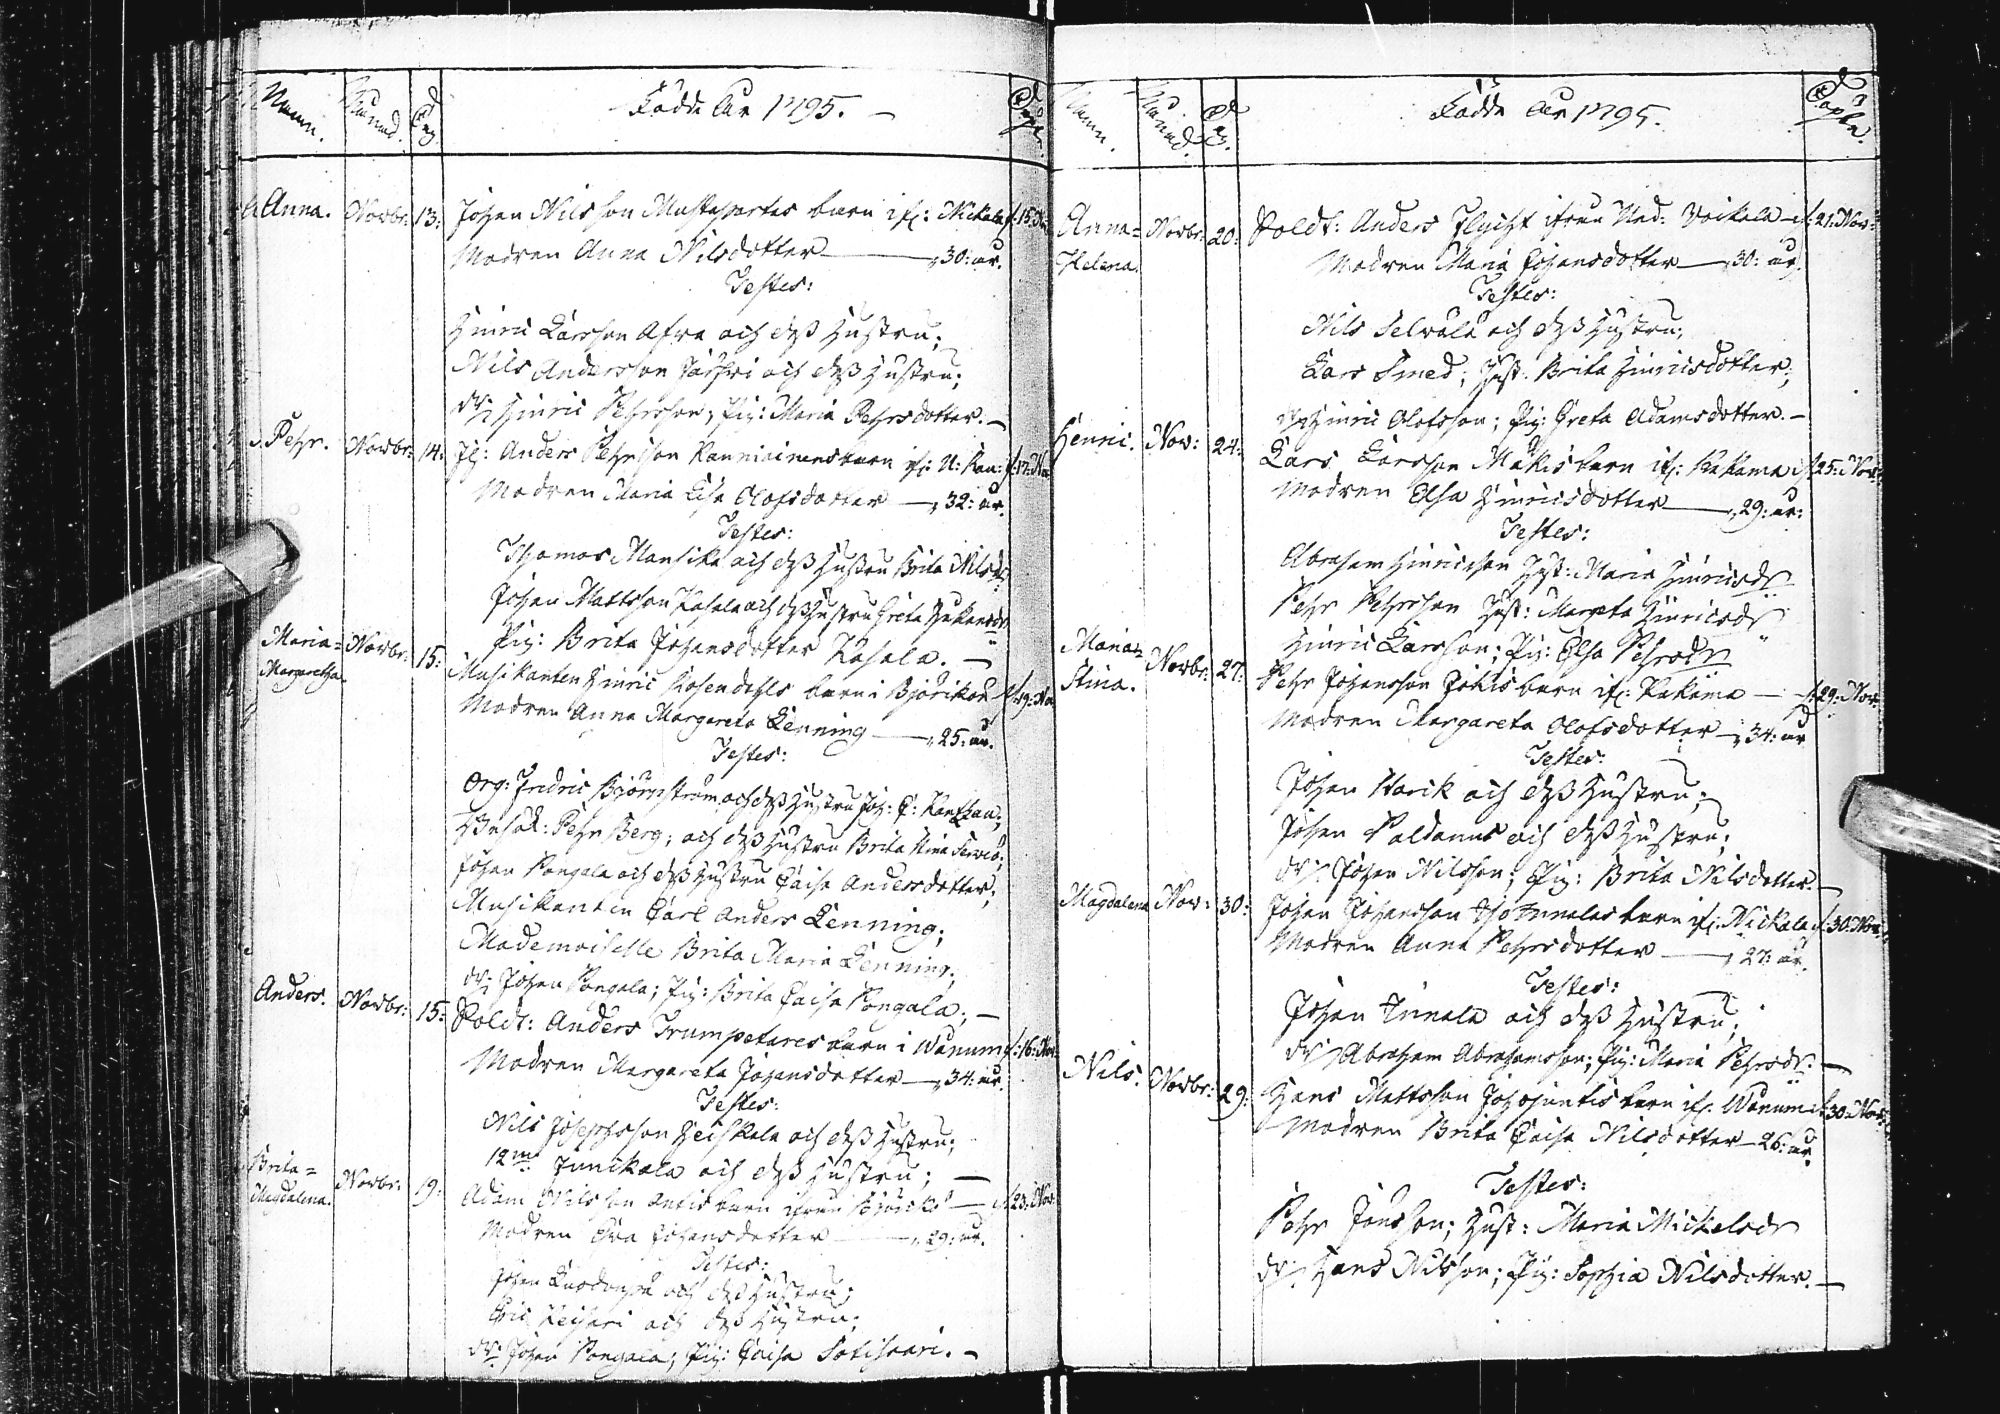 Namn. Månad. Dag. Födde År 1795. Döpte.
Anna. Novbr: 13: Johan Nilsson barn ifr: Nickala d: 15: Nov
Modren Anna Nilsdotter — 30: år.
Testes:
Hinric Larsson Afra och dess Hustru;
Nils Andersson och dess Hustru;
Dr: Hinric Pehrsson; Pig: Maria Pehrsdotter. —
Pehr. Novbr: 14: Anders Pehrsson barn ifr: d: 17: No
Modren Maria Lisa Olofsdotter — 32: år.
Testes:
Thomas Mansika och dess Hustru Brita Nilsdr
Johan Mattsson Kasala och dess Hustru Greta
Pig: Brita Johansdotter Kasala. —
Maria= Margaretha. Novbr: 15: Musikanten Hinric Rosendahls barn i Björkön d: 19: No
Modren Anna Margareta Lenning — 25: år.
Testes:
Org: Fredric Björnström och dess Hustru
Pehr Berg; och dess Hustru Brita Stina
Johan Pongala och dess Hustru Caisa Andersdotter;
Musikanten Carl Anders Lenning;
Mademoiselle Brita Maria Lenning;
Dr: Johan Pongala; Pig: Brita Caisa Pongala; —
Anders. Novbr: 15: Soldt: Anders Trumpetares barn i Wånum d: 16: Nov
Modren Margareta Johansdotter — 34: år.
Testes:
Nils Josephsson Heiskala och dess Hustru;
12m: Junikala och dess Hustru; —
Brita= Magdalena. Novbr: 19: Adam Nilsson Antis barn ifrån — d: 23: Nov
Modren Eva Johansdotter — 29: år.
Testes:
Johan och dess Hustru;
Eric Keisari och dess Hustru;
Dr: Johan Pongala; Pig: Caisa Sotisaari. —
Namn. Månad. Dag. Födde År 1795. Döpte.
Anna= Helena. Novbr: 20: Soldt: Anders Flycht ifrån Ned: Voikala d: 21: Nov:
Modren Maria Johansdotter — 30: år.
Testes:
Nils Selvälä och dess Hustru;
Lars Smed; Hust: Brita Hinricsdotter;
Dr: Hinric Olofsson; Pig: Greta Adamsdotter. —
Henric. Nov: 24: Lars Larsson Mäkis barn ifr: Kakama d: 25: Nov:
Modren Elsa Hinricsdotter — 29: år:
Testes:
Abraham Hinricsson Hust: Maria Hinricsdr
Pehr Pehrsson Hust: Margeta Hinricsdr
Hinric Larsson; Pig: Elsa Pehrsdr
Maria= Stina. Novbr: 27: Pehr Johansson Jokis barn ifr: Kakama — d: 29: Nov:
Modren Margareta Olofsdotter — 34: år
Testes:
Johan Harik och dess Hustru;
Johan Paldanus och dess Hustru;
Dr: Johan Nilsson; Pig: Brita Nilsdotter. —
Magdalena Nov: 30: Johan Johansson barn ifr: Nickala d: 30: Nov:
Modren Anna Pehrsdotter — 27: år.
Testes:
Johan Junala och dess Hustru;
Dr: Abraham Abrahamsson; Pig: Maria Pehrsdr: —
Nils. Novbr: 29: Hans Mattsson barn ifr: Wånum d: 30: Nov:
Modren Brita Caisa Nilsdotter — 26: år.
Testes:
Pehr Jonsson; Hust: Maria Mickelsdr
Dr: Hans Nilsson; Pig: Sophia Nilsdotter. —